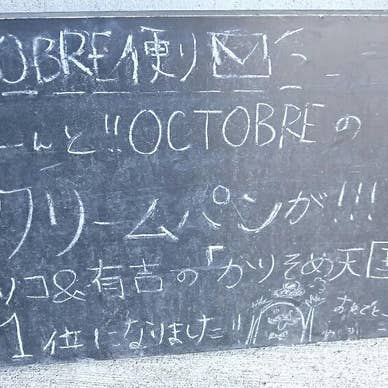 OBRE便り
ーんと!!OCTOBREの
クリームパンが!!!
ツコ&有吉の「かりそめ天国
1位になりました!!
おめでとー